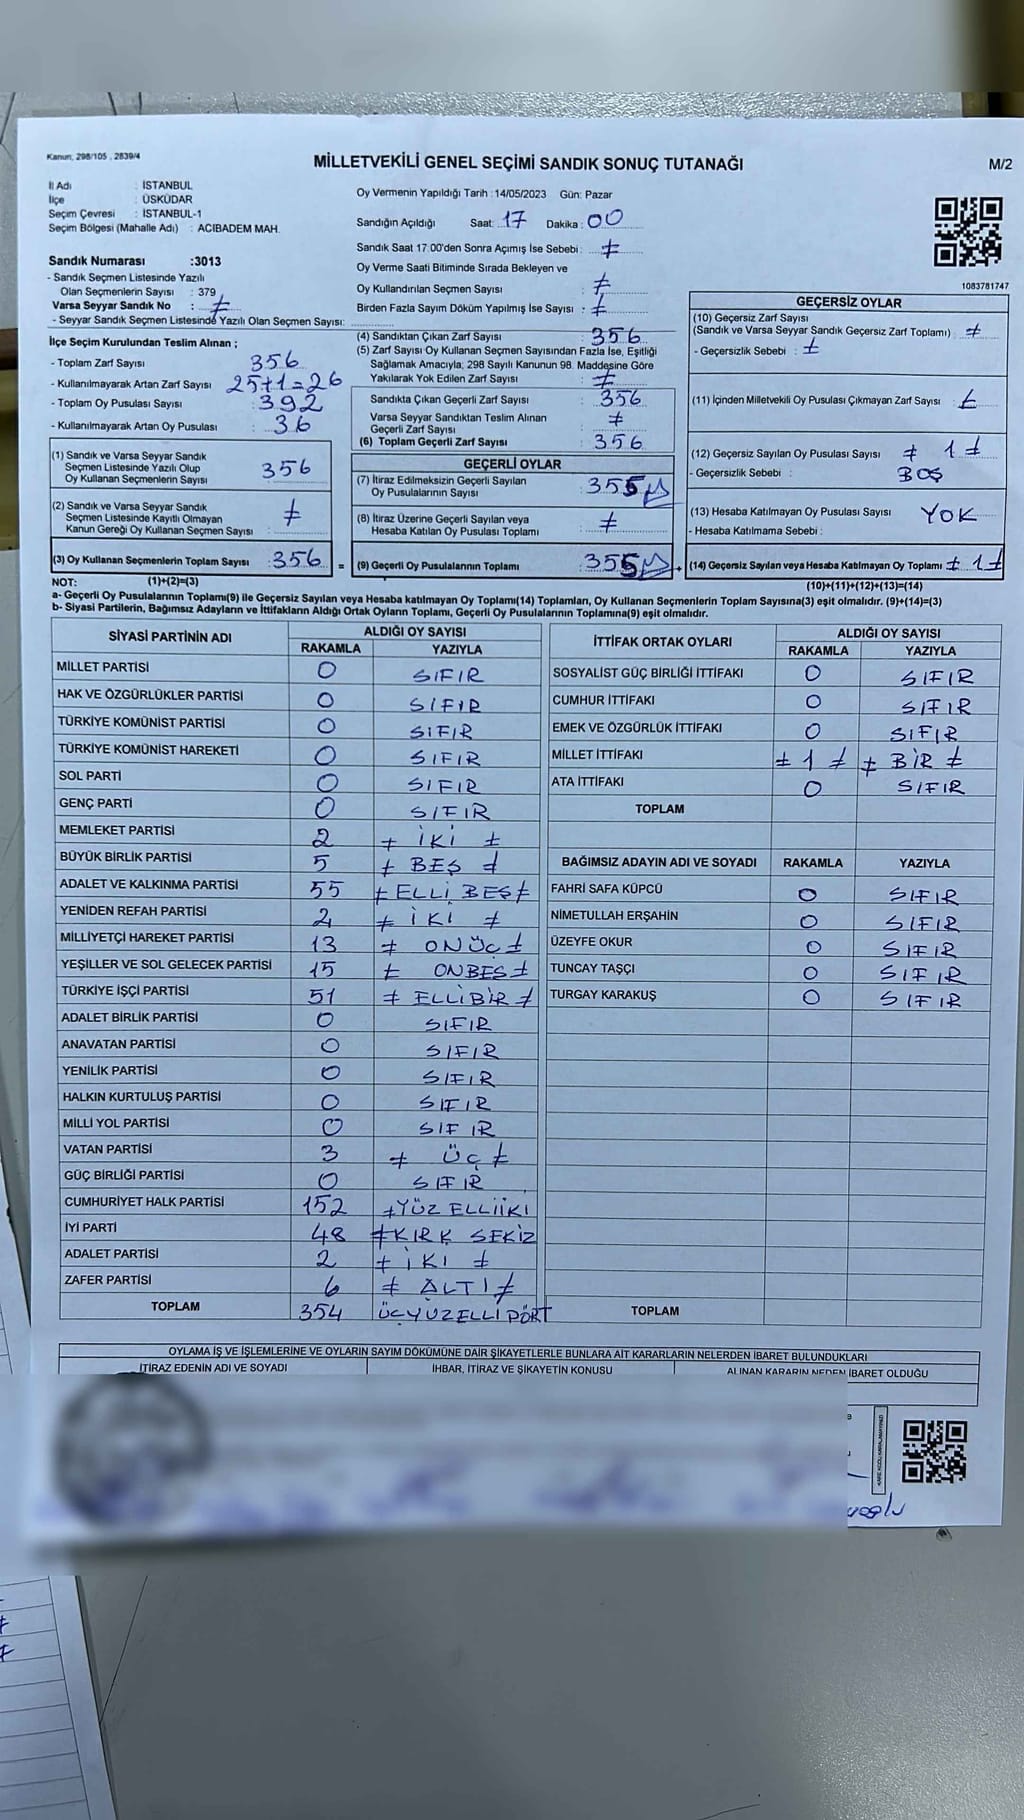 Kanun, 298/105 , 2839/4
MİLLETVEKİLİ GENEL SEÇİMİ SANDIK SONUÇ TUTANAĞI
M/2
İl Adı : İSTANBUL
İlçe : ÜSKÜDAR
Seçim Çevresi : İSTANBUL-1
Seçim Bölgesi (Mahalle Adı) : ACIBADEM MAH.
Oy Vermenin Yapıldığı Tarih :14/05/2023 Gün: Pazar
Sandığın Açıldığı Saat: 17 Dakika : 00
Sandık Saat 17:00'den Sonra Açımış İse Sebebi : ≠
Oy Verme Saati Bitiminde Sırada Bekleyen ve
Oy Kullandırılan Seçmen Sayısı : ≠
Birden Fazla Sayım Döküm Yapılmış İse Sayısı : ≠
Sandık Numarası :3013
- Sandık Seçmen Listesinde Yazılı
Olan Seçmenlerin Sayısı : 379
Varsa Seyyar Sandık No : ≠
- Seyyar Sandık Seçmen Listesinde Yazılı Olan Seçmen Sayısı:
İlçe Seçim Kurulundan Teslim Alınan ;
- Toplam Zarf Sayısı 356
- Kullanılmayarak Artan Zarf Sayısı 25+1=26
- Toplam Oy Pusulası Sayısı : 392
- Kullanılmayarak Artan Oy Pusulası : 36
(1) Sandık ve Varsa Seyyar Sandık
Seçmen Listesinde Yazılı Olup
Oy Kullanan Seçmenlerin Sayısı 356
(2) Sandık ve Varsa Seyyar Sandık
Seçmen Listesinde Kayıtlı Olmayan
Kanun Gereği Oy Kullanan Seçmen Sayısı : ≠
(3) Oy Kullanan Seçmenlerin Toplam Sayısı : 356 =
(4) Sandıktan Çıkan Zarf Sayısı : 356
(5) Zarf Sayısı Oy Kullanan Seçmen Sayısından Fazla İse, Eşitliği
Sağlamak Amacıyla; 298 Sayılı Kanunun 98. Maddesine Göre
Yakılarak Yok Edilen Zarf Sayısı : ≠
Sandıkta Çıkan Geçerli Zarf Sayısı : 356
Varsa Seyyar Sandıktan Teslim Alınan
Geçerli Zarf Sayısı : ≠
(6) Toplam Geçerli Zarf Sayısı : 356
GEÇERLİ OYLAR
(7) İtiraz Edilmeksizin Geçerli Sayılan
Oy Pusulalarının Sayısı : 355
(8) İtiraz Üzerine Geçerli Sayılan veya
Hesaba Katılan Oy Pusulası Toplamı : ≠
(9) Geçerli Oy Pusulalarının Toplamı : 355 +
1083781747
GEÇERSİZ OYLAR
(10) Geçersiz Zarf Sayısı
(Sandık ve Varsa Seyyar Sandık Geçersiz Zarf Toplamı) : ≠
- Geçersizlik Sebebi : ≠
(11) İçinden Milletvekili Oy Pusulası Çıkmayan Zarf Sayısı : ≠
(12) Geçersiz Sayılan Oy Pusulası Sayısı : ≠ 1 ≠
- Geçersizlik Sebebi : BOŞ
(13) Hesaba Katılmayan Oy Pusulası Sayısı : YOK
- Hesaba Katılmama Sebebi :
(14) Geçersiz Sayılan veya Hesaba Katılmayan Oy Toplamı : ≠ 1 ≠
NOT: (1)+(2)=(3)
(10)+(11)+(12)+(13)=(14)
a- Geçerli Oy Pusulalarının Toplamı(9) ile Geçersiz Sayılan veya Hesaba katılmayan Oy Toplamı(14) Toplamları, Oy Kullanan Seçmenlerin Toplam Sayısına(3) eşit olmalıdır. (9)+(14)=(3)
b- Siyasi Partilerin, Bağımsız Adayların ve İttifakların Aldığı Ortak Oyların Toplamı, Geçerli Oy Pusulalarının Toplamına(9) eşit olmalıdır.
SİYASİ PARTİNİN ADI ALDIĞI OY SAYISI
RAKAMLA YAZIYLA
MİLLET PARTİSİ 0 SIFIR
HAK VE ÖZGÜRLÜKLER PARTİSİ 0 SIFIR
TÜRKİYE KOMÜNİST PARTİSİ 0 SIFIR
TÜRKİYE KOMÜNİST HAREKETİ 0 SIFIR
SOL PARTİ 0 SIFIR
GENÇ PARTİ 0 SIFIR
MEMLEKET PARTİSİ 2 ≠ İKİ ≠
BÜYÜK BİRLİK PARTİSİ 5 ≠ BEŞ ≠
ADALET VE KALKINMA PARTİSİ 55 ≠ ELLİ BEŞ ≠
YENİDEN REFAH PARTİSİ 2 ≠ İKİ ≠
MİLLİYETÇİ HAREKET PARTİSİ 13 ≠ ONÜÇ ≠
YEŞİLLER VE SOL GELECEK PARTİSİ 15 ≠ ONBEŞ ≠
TÜRKİYE İŞÇİ PARTİSİ 51 ≠ ELLİBİR ≠
ADALET BİRLİK PARTİSİ 0 SIFIR
ANAVATAN PARTİSİ 0 SIFIR
YENİLİK PARTİSİ 0 SIFIR
HALKIN KURTULUŞ PARTİSİ 0 SIFIR
MİLLİ YOL PARTİSİ 0 SIFIR
VATAN PARTİSİ 3 ≠ ÜÇ ≠
GÜÇ BİRLİĞİ PARTİSİ 0 SIFIR
CUMHURİYET HALK PARTİSİ 152 ≠YÜZ ELLİİKİ
İYİ PARTİ 48 ≠KIRK SEKİZ
ADALET PARTİSİ 2 ≠ İKİ ≠
ZAFER PARTİSİ 6 ≠ ALTI ≠
TOPLAM 354 ÜÇYÜZELLİ DÖRT
İTTİFAK ORTAK OYLARI ALDIĞI OY SAYISI
RAKAMLA YAZIYLA
SOSYALİST GÜÇ BİRLİĞİ İTTİFAKI 0 SIFIR
CUMHUR İTTİFAKI 0 SIFIR
EMEK VE ÖZGÜRLÜK İTTİFAKI 0 SIFIR
MİLLET İTTİFAKI ≠ 1 ≠ ≠ BİR ≠
ATA İTTİFAKI 0 SIFIR
TOPLAM
BAĞIMSIZ ADAYIN ADI VE SOYADI RAKAMLA YAZIYLA
FAHRİ SAFA KÜPCÜ 0 SIFIR
NİMETULLAH ERŞAHİN 0 SIFIR
ÜZEYFE OKUR 0 SIFIR
TUNCAY TAŞÇI 0 SIFIR
TURGAY KARAKUŞ 0 SIFIR
TOPLAM
OYLAMA İŞ VE İŞLEMLERİNE VE OYLARIN SAYIM DÖKÜMÜNE DAİR ŞİKAYETLERLE BUNLARA AİT KARARLARIN NELERDEN İBARET BULUNDUKLARI
İTİRAZ EDENİN ADI VE SOYADI İHBAR, İTİRAZ VE ŞİKAYETİN KONUSU ALINAN KARARIN NEDEN İBARET OLDUĞU